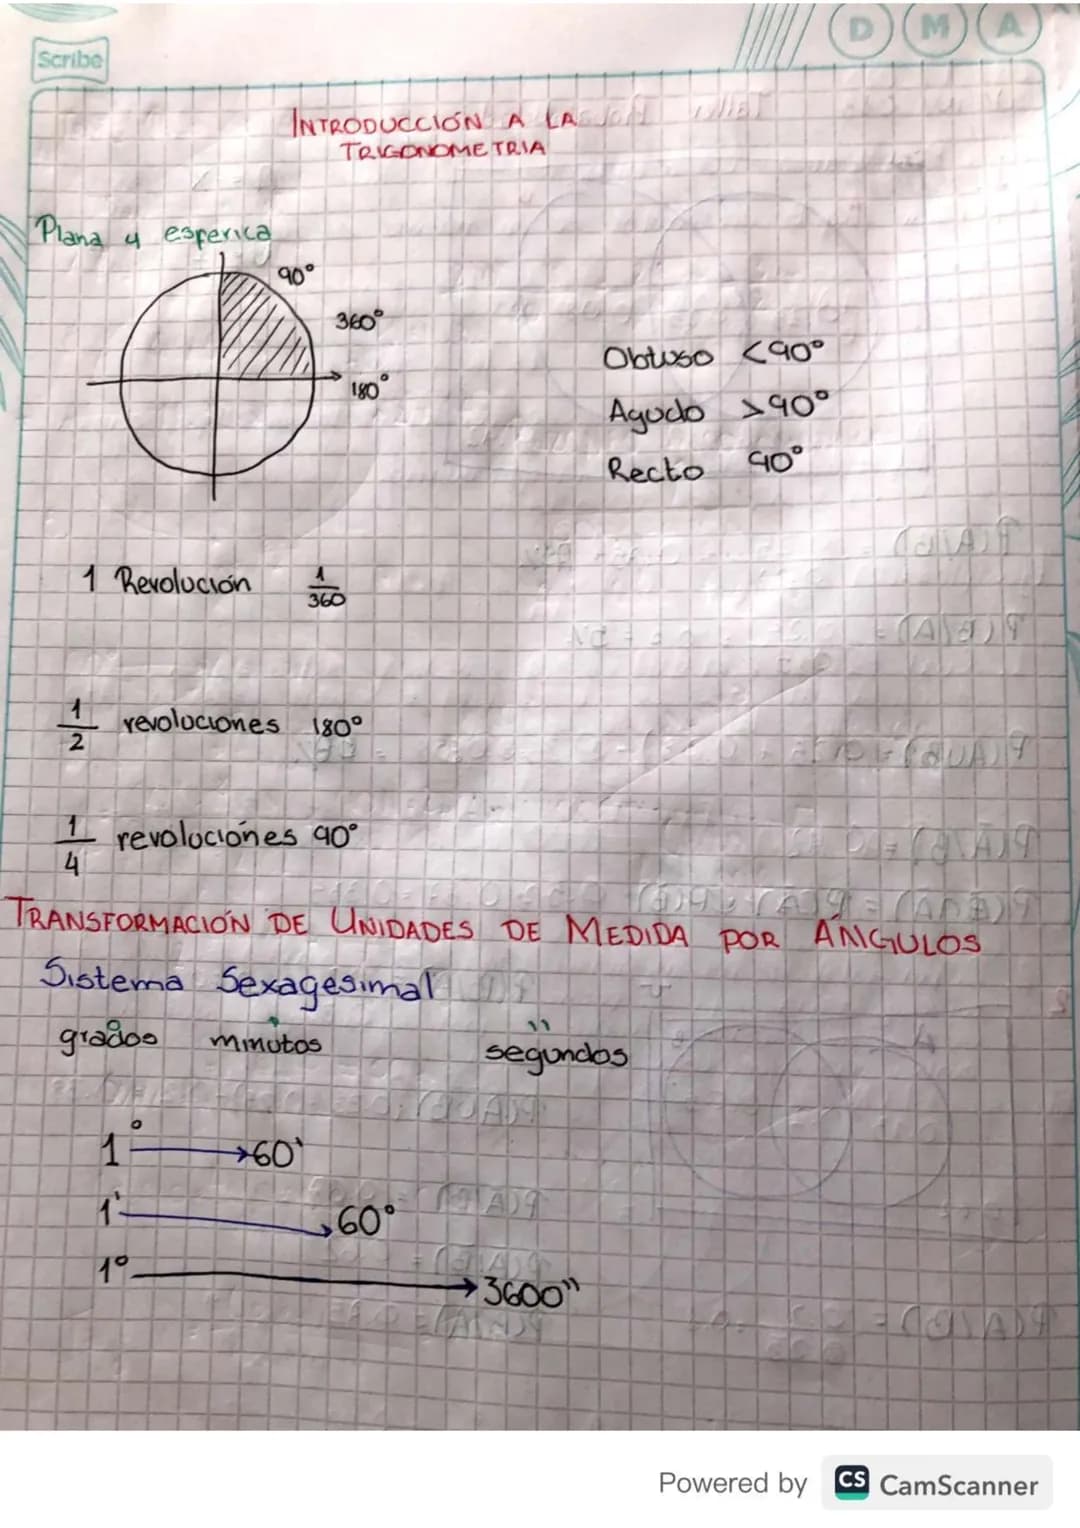 Scribe
D M A
INTRODUCCIÓN A LA
TRIGONOMETRIA
Plana y esferica
90°
360°
180°
Obtuso <90°
Agudo >90°
Recto 90°
1 Revolución 1/360
1/2 revoluciones 180°
1/4 revoluciones 90°
TRANSFORMACIÓN DE UNIDADES DE MEDIDA POR ÁNGULOS
Sistema Sexagesimal
° ' ''
grados minutos segundos
1° → 60'
1' → 60°
1° → 3600''
Powered by CS CamScanner